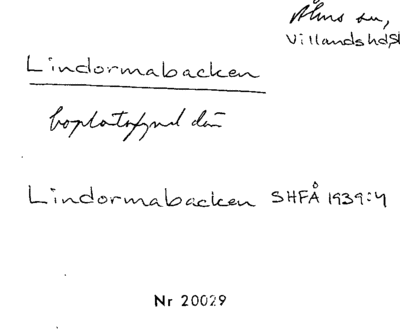 Åhus sn,
Villands hd, Sk
Lindormabacken
boplatsfynd där
Lindormabacken SHFÅ 1939:4
Nr 20029